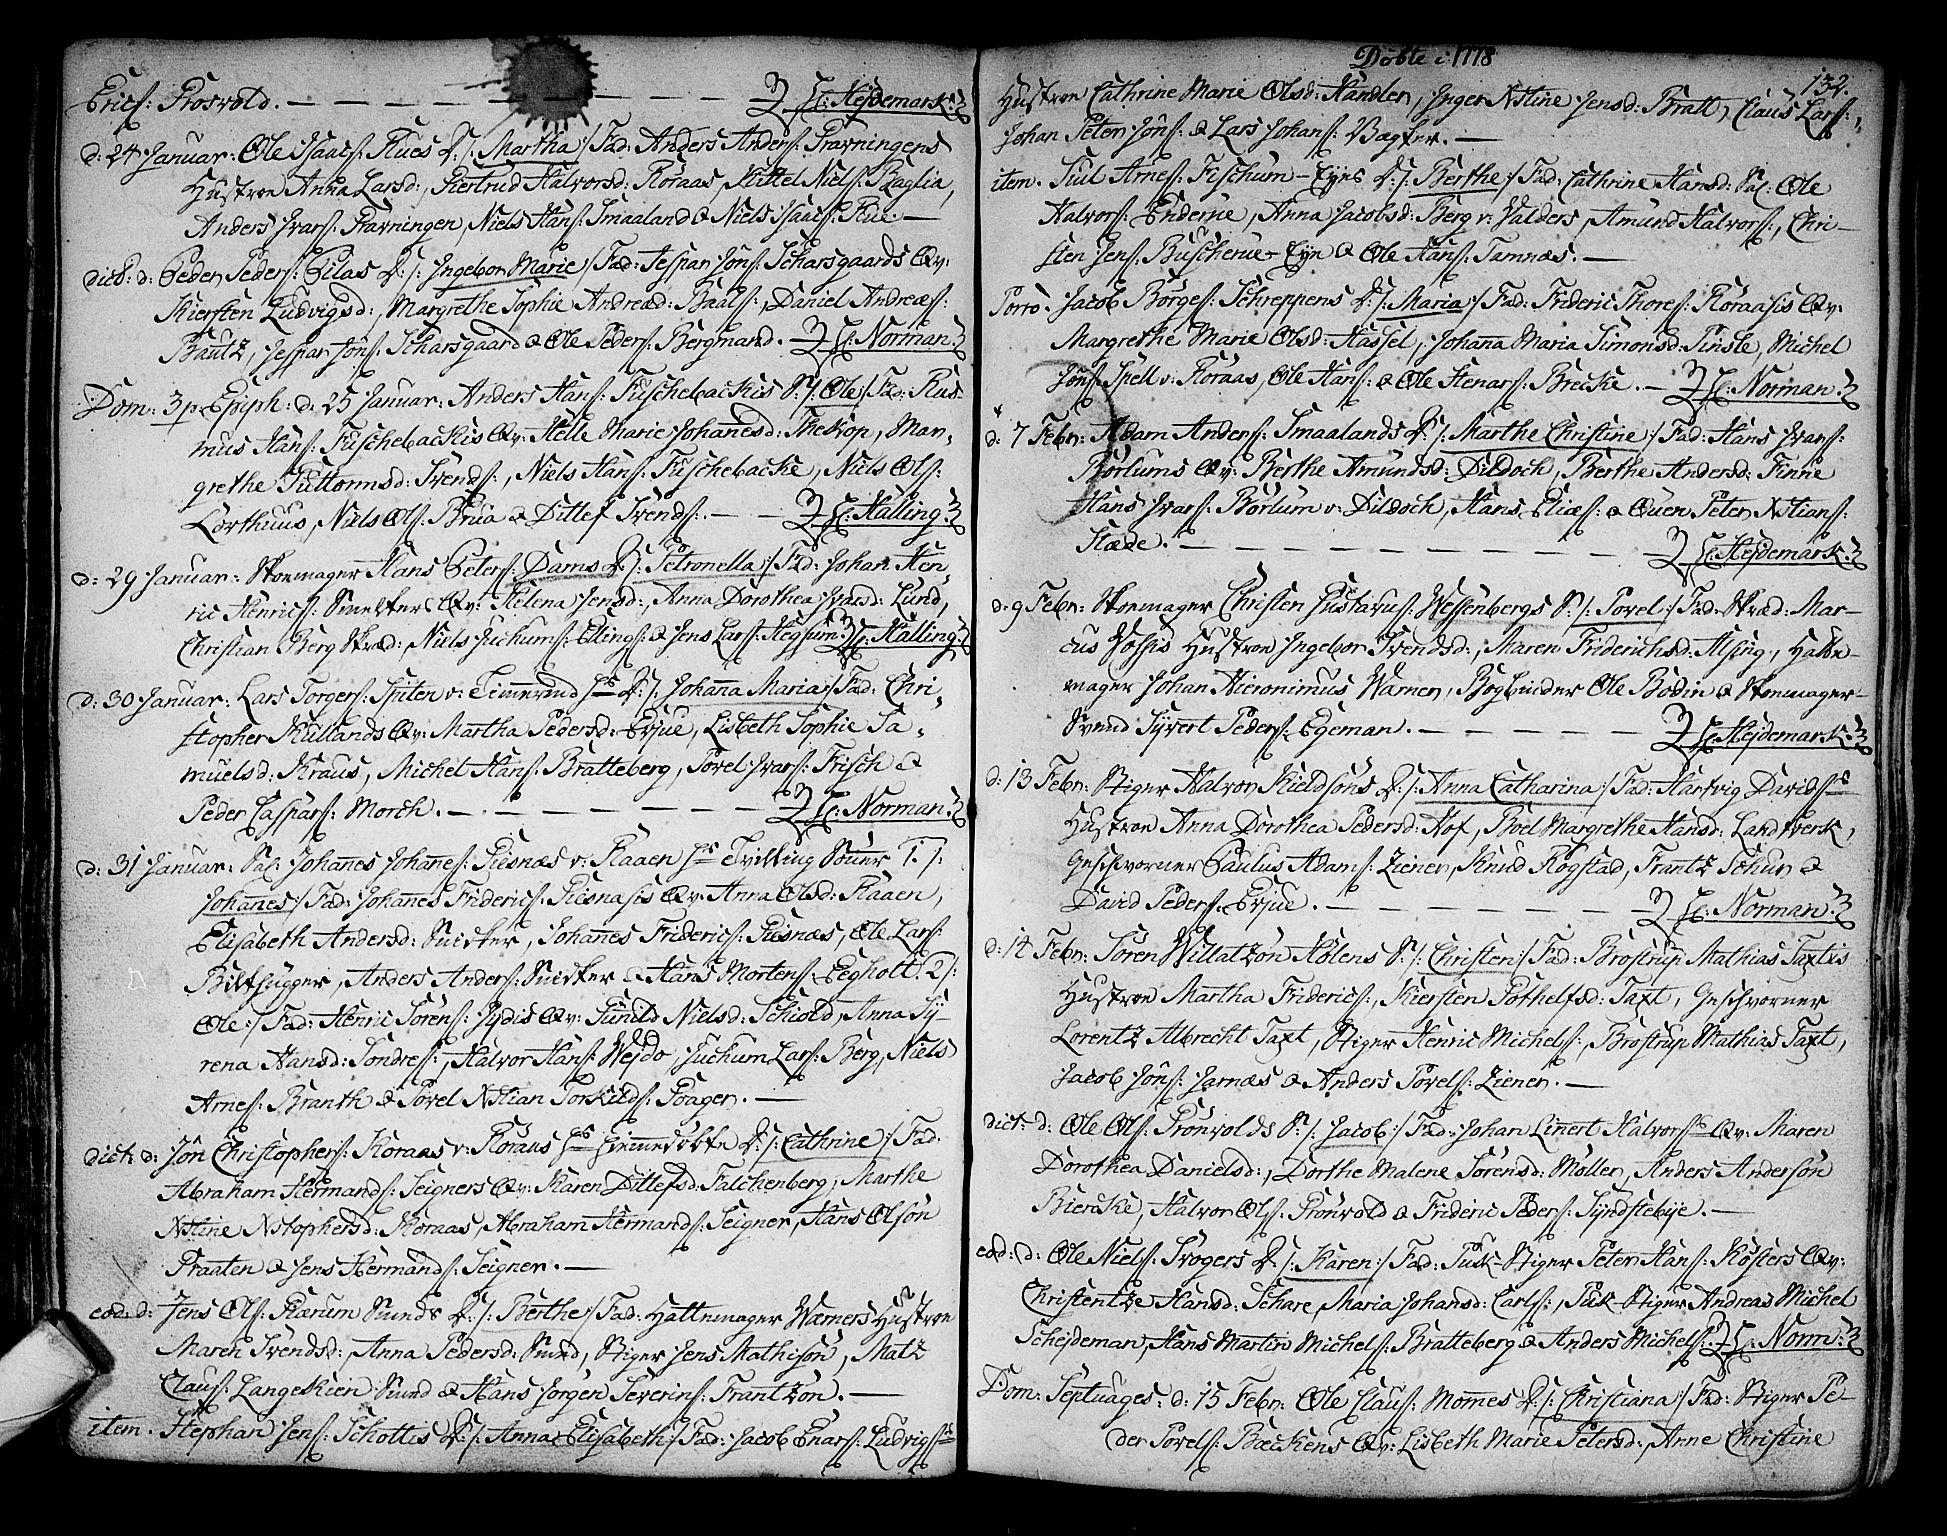 Erics: Prosvold. — — — — — — H: Hejdemark.
d: 24 Januar: Ole Isaacs: Flues D: /: Martha :/ Fad: Anders Anders: Pravningens
Hustroe Anna Larsd:, Giertrud Halvorsd: Koraas, Kittel Niels: Baglia,
Anders Ivars: Pravningen, Niels Hans: Smaaland & Niels Isaacs: Flue. —
dict: d: Peder Peders: Pilas D: /: Ingebor Marie :/ Fad: Jespar Jöns: Scharsgaards Qv:
Kiersten Ludvigsd:, Margrethe Sophie Andreæd: Baals:, Daniel Andreæs:
Bautz, Jespar Jöns: Scharsgaard & Ole Peders: Bergmand. — H: Norman.
Dom: 3 p. Epiph: d: 25 Januar: Anders Hans: Fuschebackis S: /: Ole :/ Fad: Ras-
mus Hans: Fischebackis Qv: Helle Marie Johanesd: Theskop, Mar-
grethe Guttormsd: Svends:, Niels Hans: Fischebacke, Niels Ols:
Lorthuus, Niels Ols: Brua & Ditlef Svends: — — H: Halling.
d: 29 Januar: Skoemager Hans Peters: Dams D: /: Petronella :/ Fad: Johan Hen-
ric Henrics: Smelters Qv: Helena Jensd:, Anna Dorothea Ivarsd: Lund,
Christian Berg Skræd: Niels Juchums: Ellings: & Jens Lars: Hegsum. H: Halling.
d: 30 Januar: Lars Torgers: Sputen v: Timerand hs D: /: Johanna Maria :/ Fad: Chri-
stopher Kullands Qv: Martha Pedersd: Erjue, Lisbeth Sophie Sa-
muelsd: Kraus, Michel Hans: Bratteberg, Povel Ivars: Frisch &
Peder Caspars: Morch. — — — — — H: Norman.
d: 31 Januar: Sal: Johanes Johanes: Giesnæs v: Raaen hs Tvilling Sönner 1. /:
Johanes :/ Fad: Johannes Friderics: Giesnæsis Qv: Anna Olsd: Raaen,
Elisabeth Andersd: Snicker, Johannes Friderics: Giesnæs, Ole Lars:
Bilthugger, Anders Anders: Snicker & Hans Mortens: Egholt. 2 /:
Ole :/ Fad: Henric Sörens: Jydis Qv: Gunild Nielsd: Schiold, Anna Sy-
rena Hansd: Sondres:, Halvor Hans: Wejdo, Juchum Lars: Berg, Niels
Arnes: Branth & Povel Xstian Torkilds: Poager. —
dict: d: Jön Christophers: Koraas v: Koraas hs hiemedöbte D: /: Cathrine :/ Fad:
Abraham Hermands: Seigners Qv: Karen Ditlefsd: Falchenberg, Marthe
Xstine Xstophersd: Koraas, Abraham Hermands: Seigner, Hans Olsön
Praaten & Jens Hermands: Seigner. —
eod: d: Jens Ols: Rærum Sunds D: /: Berthe :/ Fad: Hattemager Wærners Hustroe
Maren Svendsd:, Anna Pedersd: Sund, Stiger Jens Mathisön, Matz
Claus: Langeskien Sund & Hans Jörgen Severins: Frantzön. —
item. Stephan Jens: Schottis D: /: Anna Elisabeth :/ Fad: Jacob Enars: Ludvigsns
Döbte i 1778
132.
Hustroe Cathrine Marie Olsd: Handler, Inger Xstine Jensd: Bratt, Claus Lars:,
Johan Peter Jöns: & Lars Johans: Vægter. —
item. Juul Arnes: Fischum-Eyes D: /: Berthe :/ Fad: Cathrine Hansd: Sal: Ole
Halvors: Enderue, Anna Jacobsd: Berg v: Valders, Amund Halvors:, Chri-
sten Jens: Buscherue-Eye & Ole Hans: Tamnæs. —
Porro. Jacob Börges: Schreppens D: /: Maria :/ Fad: Frideric Thores: Koraasis Qv:
Margrethe Marie Olsd: Hassel, Johana Maria Simonsd: Tinsle, Michel
Jöns: Spell v: Koraas, Ole Hans: & Ole Stenars: Brecke. — H: Norman.
d: 7 Febr: Adam Anders: Smaalands D: /: Marthe Christine :/ Fad: Hans Ivars:
Borlums Qv: Berthe Amundsd: Dildoch, Berthe Andersd: Finne
Hans Ivars: Borlum v: Dildoch, Hans Eliæs: & Even Peter Xstians:
Stæde. — — — — — — H: Hejdemark.
d: 9 Febr: Skoemager Christen Gustavus: Wessenbergs S: /: Povel :/ Fad: Skræd: Mar-
cus Vossis Hustroe Ingebor Svendsd:, Maren Friderichsd: Alsing, Hatte-
mager Johan Hieronimus Warner, Bogbinder Ole Bodin & Skoemager-
Svend Syvert Peders: Egeman. — — — — H: Hejdemark.
d: 13 Febr: Stiger Halvor Kieldsöns D: /: Anna Catharina :/ Fad: Hartvig Davidsns
Hustroe Anna Dorothea Pedersd: Hof, Boel Margrethe Hansd: Landtverk,
Geschvorner Paulus Adams: Ziener, Knud Rogstad, Frantz Schur &
David Peders: Erjue. — — — — H: Norman.
d: 14 Febr: Sören Willatzön Holens S: /: Christen :/ Fad: Brostrup Mathias Taxtis
Hustroe Martha Friderics:, Kiersten Pothelfsd: Taxt, Geschvorner
Lorentz Albrecht Taxt, Stiger Henric Michels:, Brostrup Mathias Taxt,
Jacob Jöns: Jarnæs & Anders Povels: Ziener. —
dict: d: Ole Ols: Grönvolds S: /: Jacob :/ Fad: Johan Linert Halvorsns Qv: Maren
Dorothea Danielsd:, Dorthe Malene Sörensd: Moller, Anders Andersön
Biercke, Halvor Ols: Grönvold & Frideric Peders: Syndstebye. —
eod: d: Ole Niels: Trogers D: /: Karen :/ Fad: Puk-Stiger Peter Hans: Kösters Qv:
Christentze Hansd: Schare, Maria Johansd: Carls:, Puk-Stiger Andreas Michel
Schejdeman, Hans Martin Michels: Bratteberg & Anders Michels: H: Norm:
Dom: Septuages: d: 15 Febr: Ole Claus: Momes D: /: Christiana :/ Fad: Stiger Pe-
der Povels: Bæckens Qv: Lisbeth Marie Petersd:, Anne Christine